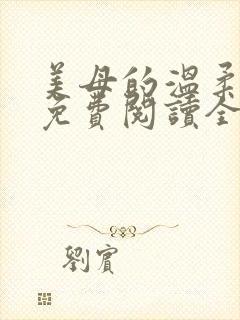 美母的温柔
免費閱讀全
劉賓